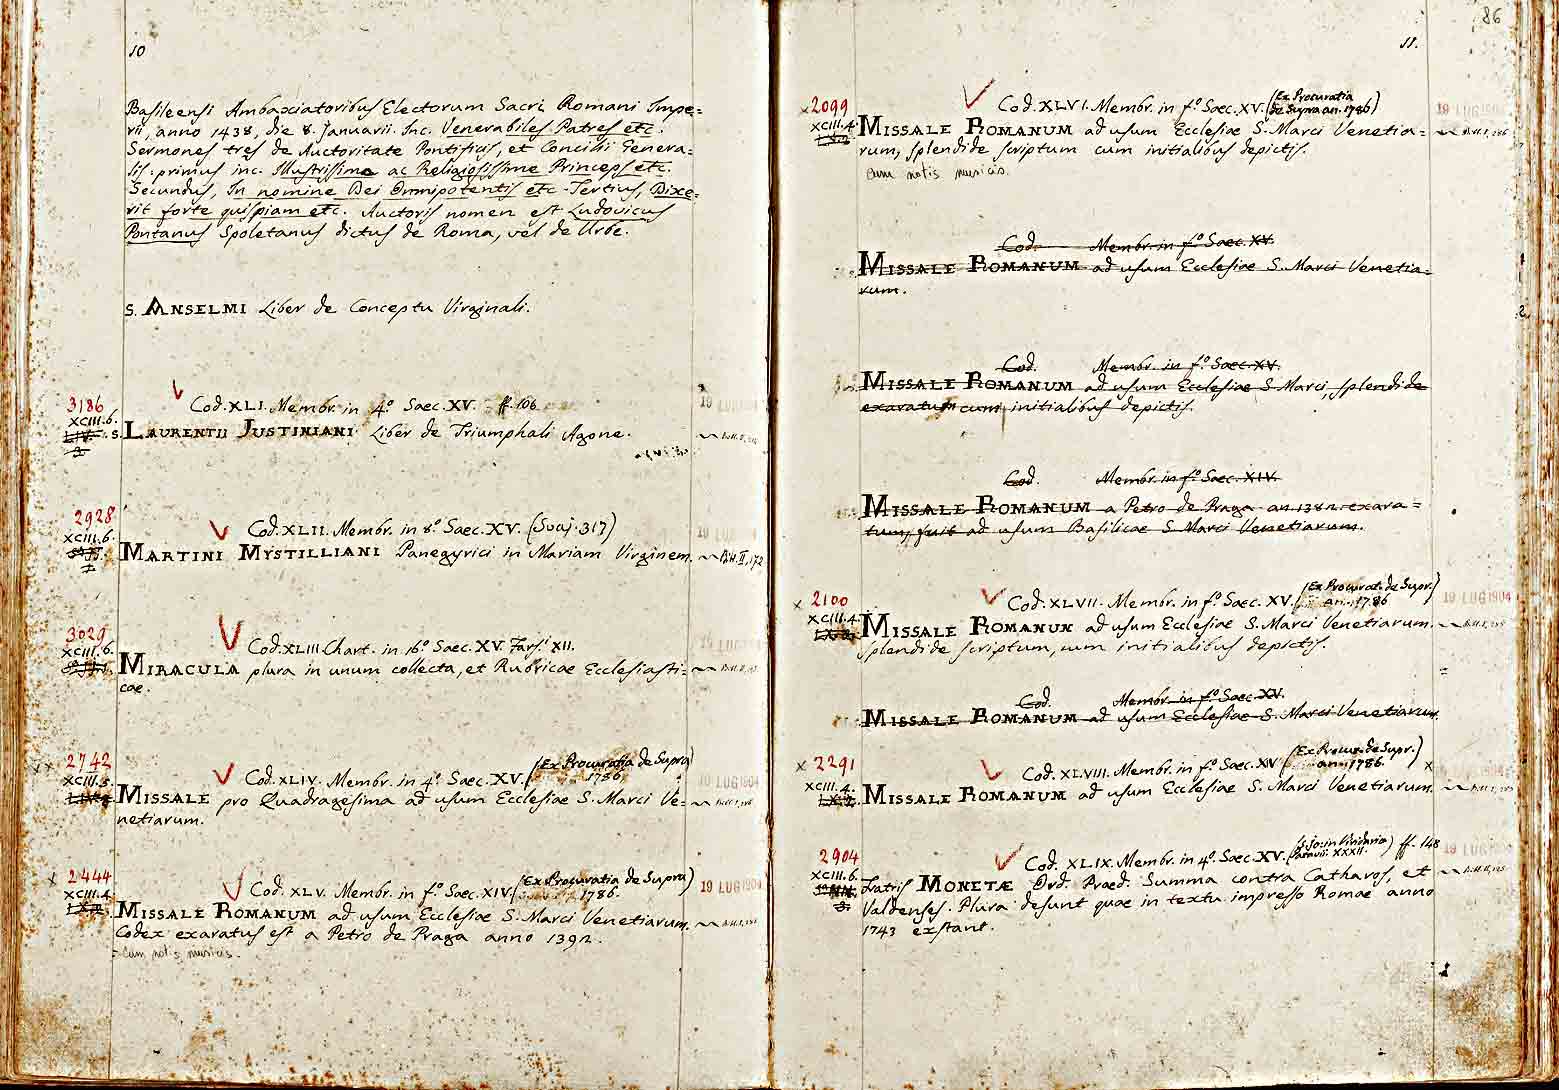 10
Basileensi Ambaxiatoribus Electorum Sacri Romani Impe=
rii, anno 1438, die 8. Januarii. Inc. Venerabiles Patres etc.
Sermones tres de Auctoritate Pontificis, et Concilii Genera=
lis: primus inc. Illustrissime ac Religiosissime Princeps etc.
Secundus, In nomine Dei Omnipotentis etc. Tertius, Dixe=
rit forte quispiam etc. Auctoris nomen est Ludovicus
Pontanus Spoletanus dictus de Roma, vel de Urbe.
S. ANSELMI Liber de Conceptu Virginali.
3186
XCIII.6.
Cod. XLI. Membr. in 4.º Saec. XV. ff. 106
19 LUG 1904
S. LAURENTII JUSTINIANI Liber de Triumphali Agone.
2928
XCIII.6.
Cod. XLII. Membr. in 8.º Saec. XV. (Svaj. 317)
MARTINI MYSTILLIANI Panegyrici in Mariam Virginem.
3029
XCIII.6.
Cod. XLIII. Chart. in 16.º Saec. XV. Fars. XII.
MIRACULA plura in unum collecta, et Rubricae Ecclesiasti=
cae.
2742
XCIII.5.
Cod. XLIV. Membr. in 4.º Saec. XV. (Ex Procuratia de Supra)
1786
19 LUG 1904
MISSALE pro Quadragesima ad usum Ecclesiae S. Marci Ve=
netiarum.
x 2444
XCIII.4.
Cod. XLV. Membr. in fº Saec. XIV. (Ex Procuratia de Supra)
1786
19 LUG 1904
MISSALE ROMANUM ad usum Ecclesiae S. Marci Venetiarum.
Codex exaratus est a Petro de Praga anno 1392.
cum notis musicis.
86
11.
x 2099
XCIII.4.
Cod. XLVI. Membr. in fº Saec. XV. (Ex Procuratia
de Supra an. 1786)
19 LUG 1904
MISSALE ROMANUM ad usum Ecclesiae S. Marci Venetia=
rum, splendide scriptum cum initialibus depictis.
cum notis musicis.
Cod. Membr. in fº Saec. XV.
MISSALE ROMANUM ad usum Ecclesiae S. Marci Venetia=
rum.
Cod. Membr. in fº Saec. XV.
MISSALE ROMANUM ad usum Ecclesiae S. Marci, splendide
exaratum cum initialibus depictis.
Cod. Membr. in fº Saec. XIV.
MISSALE ROMANUM a Petro de Praga an. 1382 exara=
tum, fuit ad usum Basilicae S. Marci Venetiarum.
x 2100
XCIII.4.
Cod. XLVII. Membr. in fº Saec. XV. (Ex Procurat. de Supr.)
an. 1786
19 LUG 1904
MISSALE ROMANUM ad usum Ecclesiae S. Marci Venetiarum.
splendide scriptum, cum initialibus depictis.
Cod. Membr. in fº Saec. XV.
MISSALE ROMANUM ad usum Ecclesiae S. Marci Venetiarum.
x 2291
XCIII.4.
Cod. XLVIII. Membr. in fº Saec. XIV (Ex Procur. de Supr.)
an. 1786.
x
MISSALE ROMANUM ad usum Ecclesiae S. Marci Venetiarum.
2904
XCIII.6.
Cod. XLIX. Membr. in 4º. Saec. XV. (S. Jo: in Viridario
Patavii. XXXII.) ff. 148
Fratris MONETÆ Ord. Praed. Summa contra Catharos, et
Valdenses. Plura desunt quae in textu impresso Romae anno
1743 exstant.